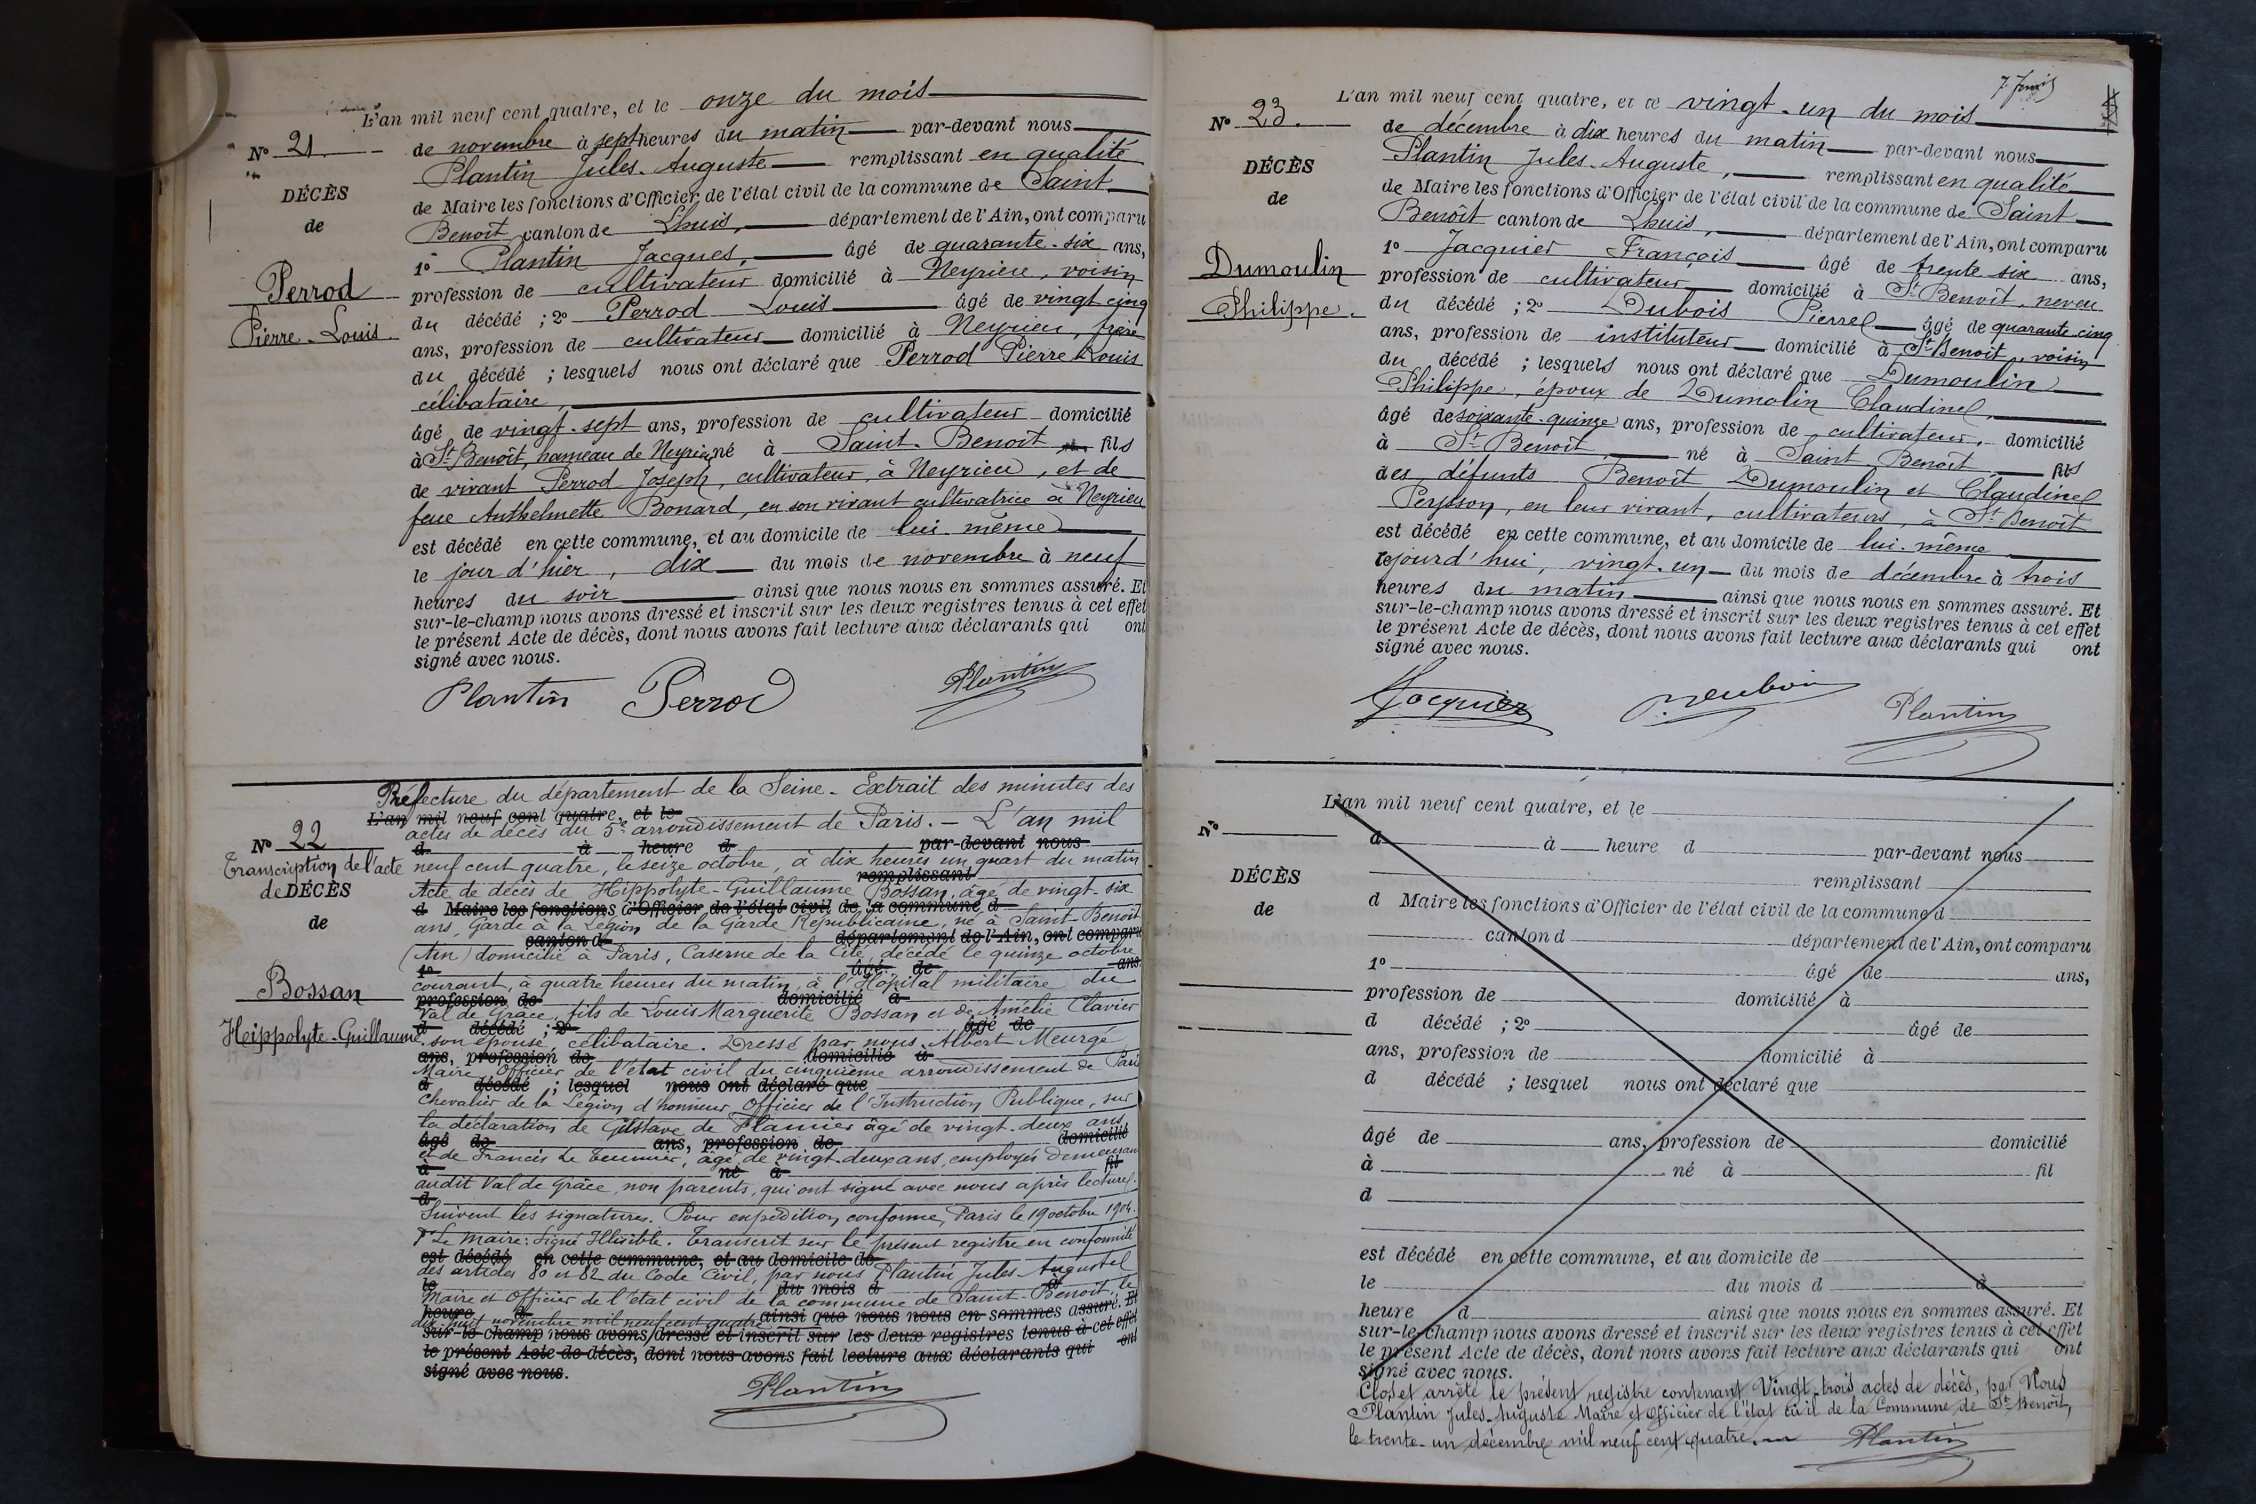 L'an mil neuf cent quatre, et le onze du mois
N° 21.
de novembre à sept heures du matin par-devant nous
Plantin Jules-Auguste remplissant en qualité
DÉCÈS
de Maire les fonctions d'Officier de l'état civil de la commune de Saint
de
Benoit canton de Lhuis, département de l'Ain, ont comparu
1° Plantin Jacques, âgé de quarante-six ans,
Perrod
profession de cultivateur domicilié à Neyrieu, voisin
Pierre-Louis.
du décédé ; 2° Perrod Louis âgé de vingt cinq
ans, profession de cultivateur domicilié à Neyrieu, frère
du décédé ; lesquels nous ont déclaré que Perrod Pierre Louis
célibataire,
âgé de vingt-sept ans, profession de cultivateur domicilié
à St Benoît, hameau de Neyrieu né à Saint-Benoît fils
de vivant Perrod Joseph, cultivateur, à Neyrieu, et de
feue Anthelmette Bonard, en son vivant cultivatrice à Neyrieu
est décédé en cette commune, et au domicile de lui-même
le jour d'hier, dix du mois de novembre à neuf
heures du soir ainsi que nous nous en sommes assuré. Et
sur-le-champ nous avons dressé et inscrit sur les deux registres tenus à cet effet
le présent Acte de décès, dont nous avons fait lecture aux déclarants qui ont
signé avec nous.
Plantin Perrod Plantin
Préfecture du département de la Seine - Extrait des minutes des
L'an mil neuf cent quatre, et le
actes de décès du 5e arrondissement de Paris. - L'an mil
N° 22
d à heure d par-devant nous
Transcription de l'acte
neuf cent quatre, le seize octobre, à dix heures un quart du matin
remplissant
de DÉCÈS
Acte de décès de Hippolyte-Guillaume Bossan, âgé de vingt-six
d Maire les fonctions d'Officier de l'état civil de la commune d
de
ans, Garde à la Légion de la Garde Républicaine, né à Saint-Benoit
canton d département de l'Ain, ont comparu
(Ain) domicilié à Paris, Caserne de la Cité, décédé le quinze octobre
1° âgé de ans
Bossan
courant, à quatre heures du matin, à l'Hôpital militaire du
profession de domicilié à
Val de Grâce, fils de Louis Marguerite Bossan et de Amélie Clavier
Hippolyte-Guillaume
d décédé ; 2° âgé de
son épouse, célibataire. Dressé par nous, Albert Meurgé
ans, profession de domicilié à
Maire, Officier de l'état civil du cinquième arrondissement de Paris
d décédé ; lesquel nous ont déclaré que
Chevalier de la Légion d'honneur, Officier de l'Instruction Publique, sur
la déclaration de Gustave de âgé de vingt-deux ans
âgé de ans, profession de domicilié
et de Francis Le âgé de vingt-deux ans, employés demeurant
à né à fil
audit Val de Grâce, non parents, qui ont signé avec nous après lecture.
d
Suivent les signatures. Pour expédition conforme, Paris le 19 octobre 1904.
Pr Le Maire : Signé Illisible. Transcrit sur le présent registre en conformité
est décédé en cette commune, et au domicile de
des articles 80 et 82 du Code Civil, par nous Plantin Jules-Auguste
le du mois d à
Maire et Officier de l'état civil de la commune de Saint-Benoit, le
heure d ainsi que nous nous en sommes assuré. Et
dix-huit novembre mil neuf cent quatre
sur-le-champ nous avons dressé et inscrit sur les deux registres tenus à cet effet
le présent Acte de décès, dont nous avons fait lecture aux déclarants qui ont
signé avec nous.
Plantin
L'an mil neuf cent quatre, et le vingt-un du mois
N° 23.
de décembre à dix heures du matin par-devant nous
Plantin Jules-Auguste, remplissant en qualité
DÉCÈS
de Maire les fonctions d'Officier de l'état civil de la commune de Saint
de
Benoît canton de Lhuis, département de l'Ain, ont comparu
1° Jacquier François âgé de trente six ans,
Dumoulin
profession de cultivateur domicilié à St Benoit, neveu
Philippe.
du décédé ; 2° Dubois Pierre âgé de quarante cinq
ans, profession de instituteur domicilié à St Benoit, voisin
du décédé ; lesquels nous ont déclaré que Dumoulin
Philippe, époux de Dumolin Claudine,
âgé de soixante-quinze ans, profession de cultivateur, domicilié
à St Benoit né à Saint Benoît fils
des défunts Benoît Dumoulin et Claudine
Peysson, en leur vivant, cultivateurs, à St Benoît
est décédé en cette commune, et au domicile de lui-même
cejourd'hui, vingt-un du mois de décembre à trois
heures du matin ainsi que nous nous en sommes assuré. Et
sur-le-champ nous avons dressé et inscrit sur les deux registres tenus à cet effet
le présent Acte de décès, dont nous avons fait lecture aux déclarants qui ont
signé avec nous.
Jacquier Dubois Plantin
L'an mil neuf cent quatre, et le
N°
d à heure d par-devant nous
remplissant
DÉCÈS
d Maire les fonctions d'Officier de l'état civil de la commune d
de
canton d département de l'Ain, ont comparu
1° âgé de ans,
profession de domicilié à
d décédé ; 2° âgé de
ans, profession de domicilié à
d décédé ; lesquel nous ont déclaré que
âgé de ans, profession de domicilié
à né à fil
d
est décédé en cette commune, et au domicile de
le du mois d à
heure d ainsi que nous nous en sommes assuré. Et
sur-le-champ nous avons dressé et inscrit sur les deux registres tenus à cet effet
le présent Acte de décès, dont nous avons fait lecture aux déclarants qui ont
signé avec nous.
Clos et arrêté le présent registre contenant Vingt-trois actes de décès, par Nous
Plantin Jules-Auguste Maire et Officier de l'état civil de la Commune de St Benoît,
le trente-un décembre mil neuf cent quatre. Plantin